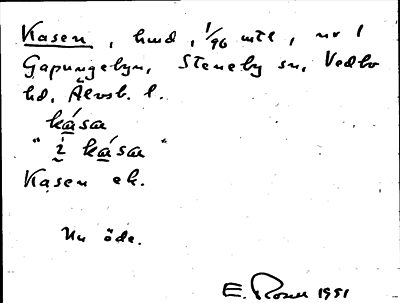 Kasen, hmd, 1/96 mtl, nr 1
Gapungebyn, Steneby sn, Vedbo
hd, Älvsb. l.
kása
"i kása"
Kasen ek.
Nu öde.
E. Rosell 1951